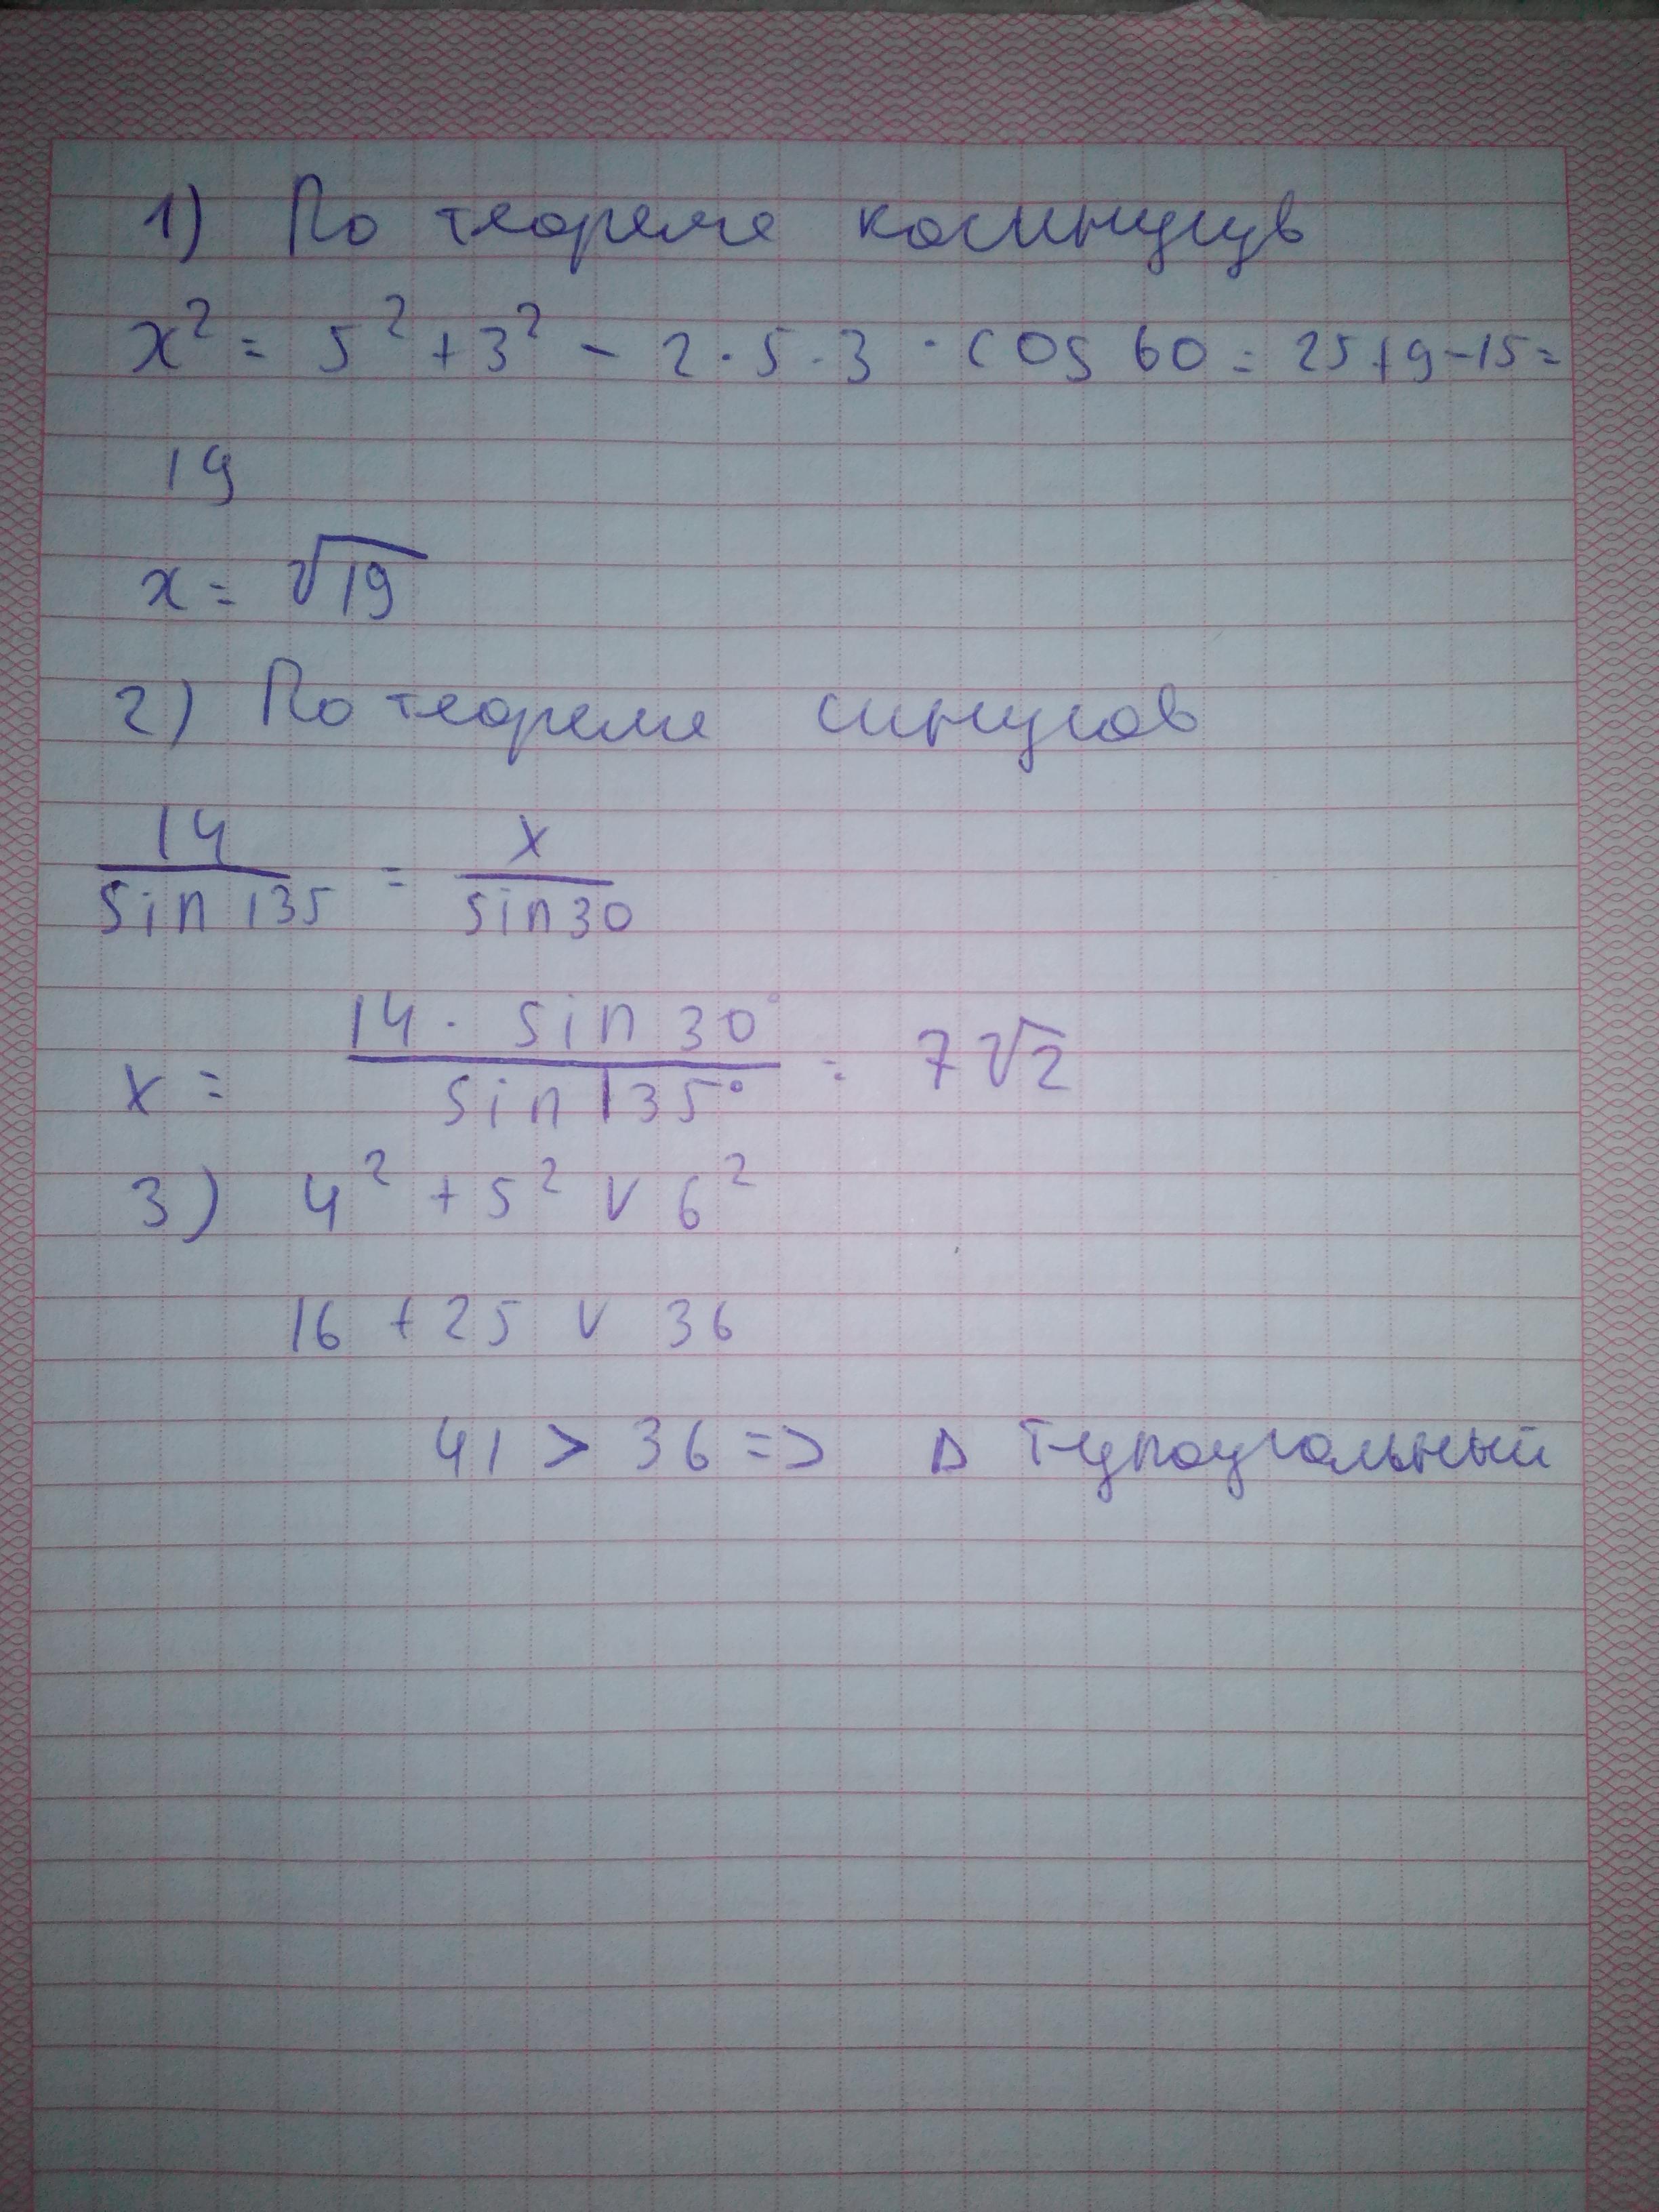 1) По теореме косинусув
x² = 5² + 3² - 2 · 5 · 3 · cos 60 = 25 + 9 - 15 =
19
x = √19
2) По теореме синусов
14/sin 135 = x/sin 30
x = 14 · sin 30°/sin 135° = 7√2
3) 4² + 5² V 6²
16 + 25 V 36
41 > 36 => Δ тупоугольный